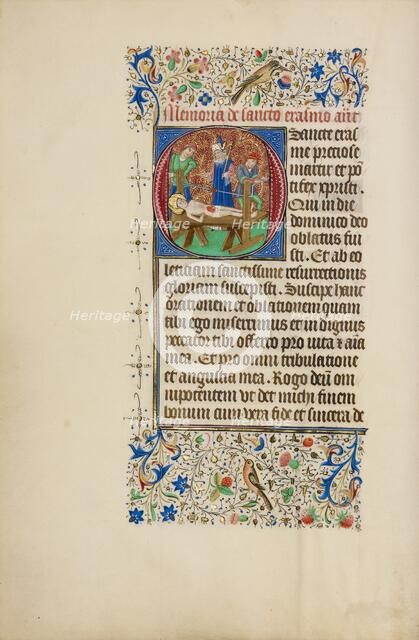 Memoria de sancto erasmo ant̄
Sancte eras
me preciose
martir et pō
tifex xpristi.
Qui in die
dominico deo
oblatus fui
sti. Et ab eo
leticiam sanctissime resurrectionis
gloriam suscepisti. Suscipe hanc
orationem et oblationem quam
tibi ego miserrimus et indignus
peccator tibi offero pro vita et aīa
mea. Et pro omni tribulatione
et angustia mea. Rogo deū om
nipotentem vt det michi finem
bonum cum vera fide et sincera de
Heritage
Heritage
Heritage
Heritage
Heritage